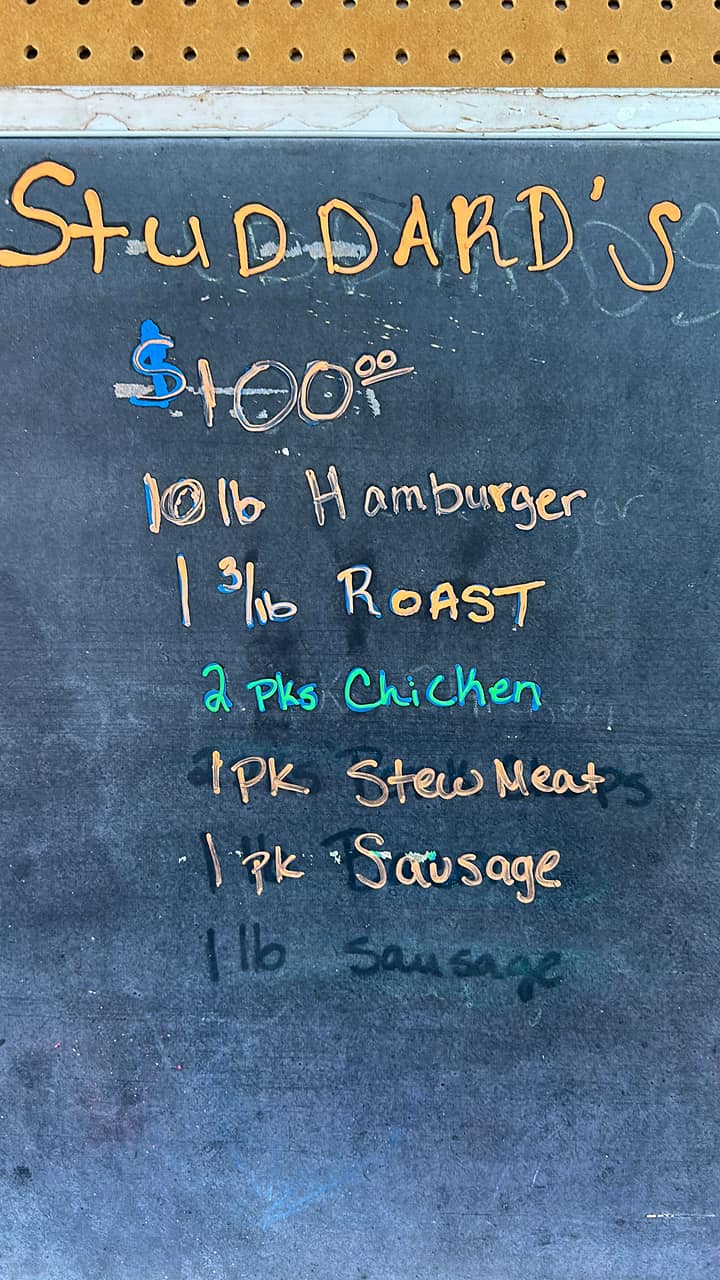 StuDDARD's
$100.00
10 lb Hamburger
1 3/lb ROAST
2 PKs Chicken
1 PK Stew Meat
1 PK Sausage
1 lb Sausage